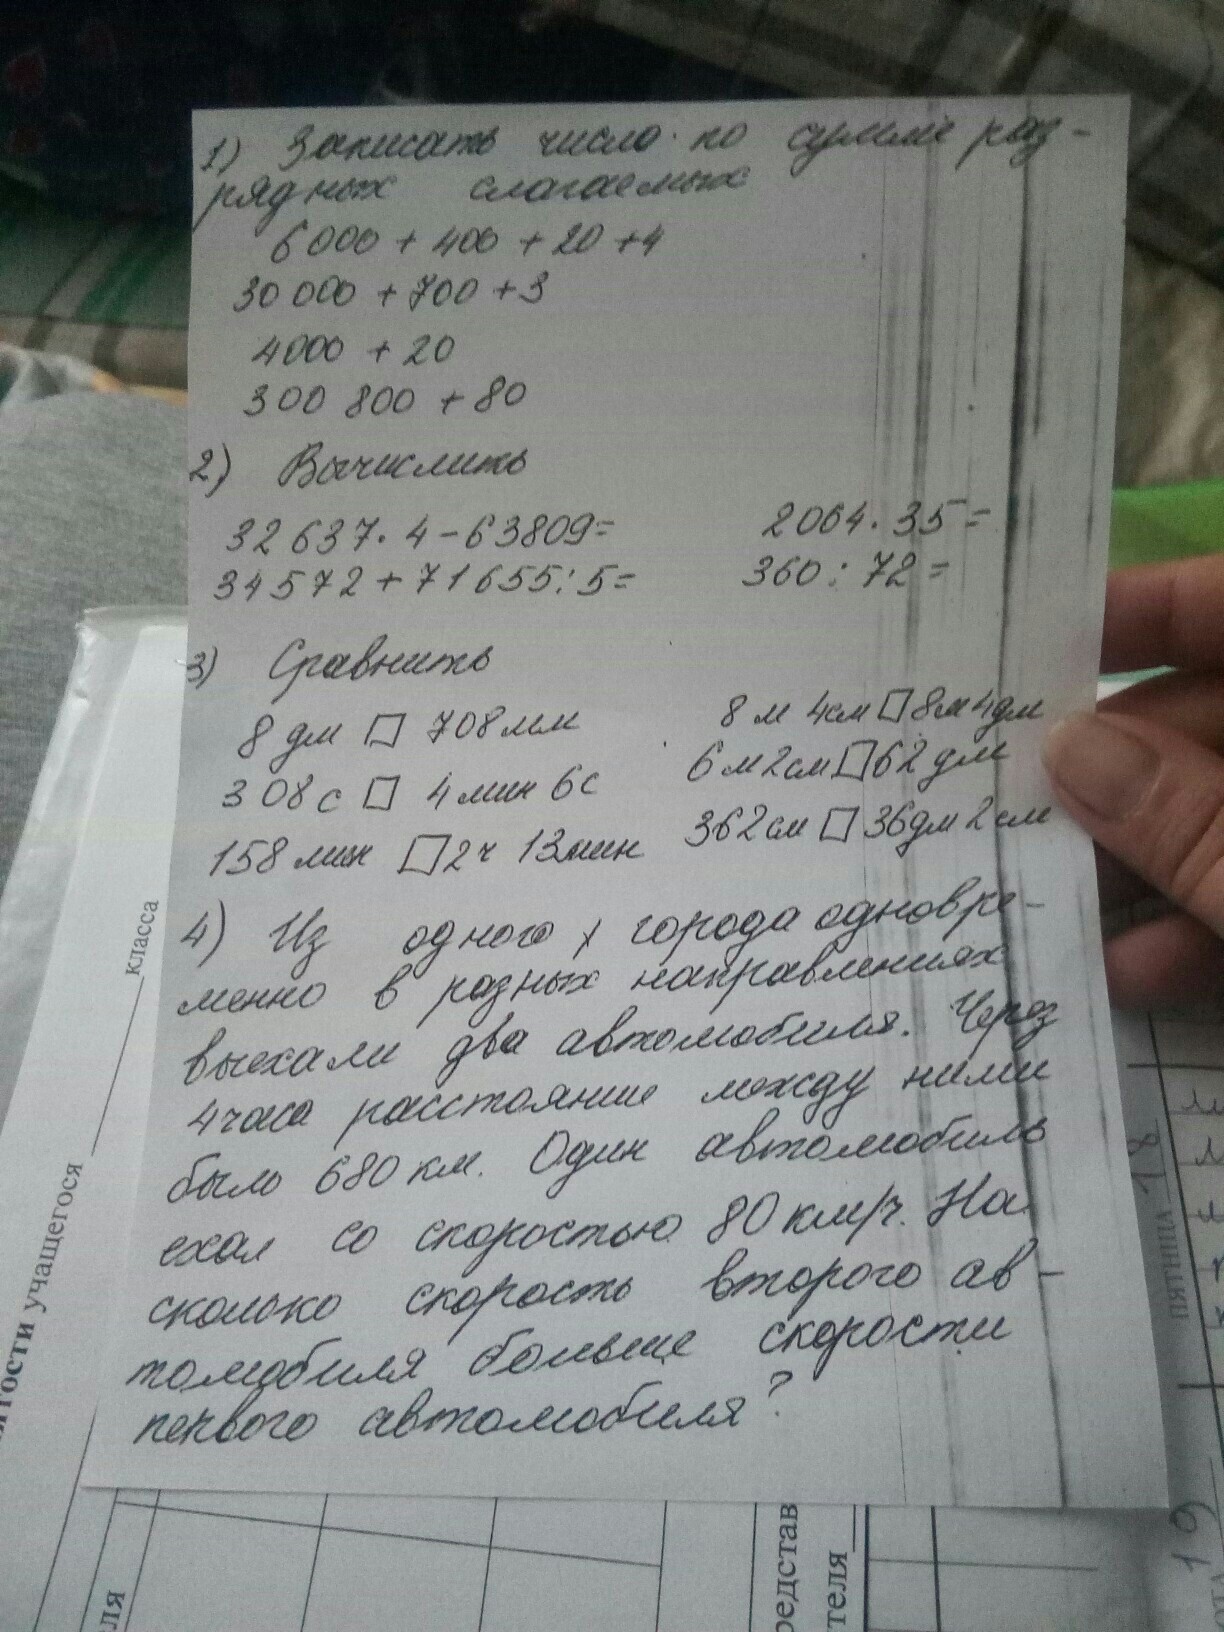 1) Записать число по сумме раз-
рядных слагаемых
6 000 + 400 + 20 + 4
30 000 + 700 + 3
4000 + 20
300 800 + 80
2) Вычислить
32 637 · 4 - 63809 =
2064 · 35 =
34 572 + 71 655 : 5 =
360 : 72 =
3) Сравнить
8 дм □ 708 мм
8 м 4см □ 8м 4дм
308 с □ 4 мин 6с
6 м 2см □ 62 дм
158 мин □ 2ч 13мин
362см □ 36дм 2см
4) Из одного города одновре-
менно в разных направлениях
выехали два автомобиля. Через
4 часа расстояние между ними
было 680 км. Один автомобиль
ехал со скоростью 80 км/ч. На
сколько скорость второго ав-
томобиля больше скорости
первого автомобиля?
класса
учащегося
ПЯТНИЦА 18
19